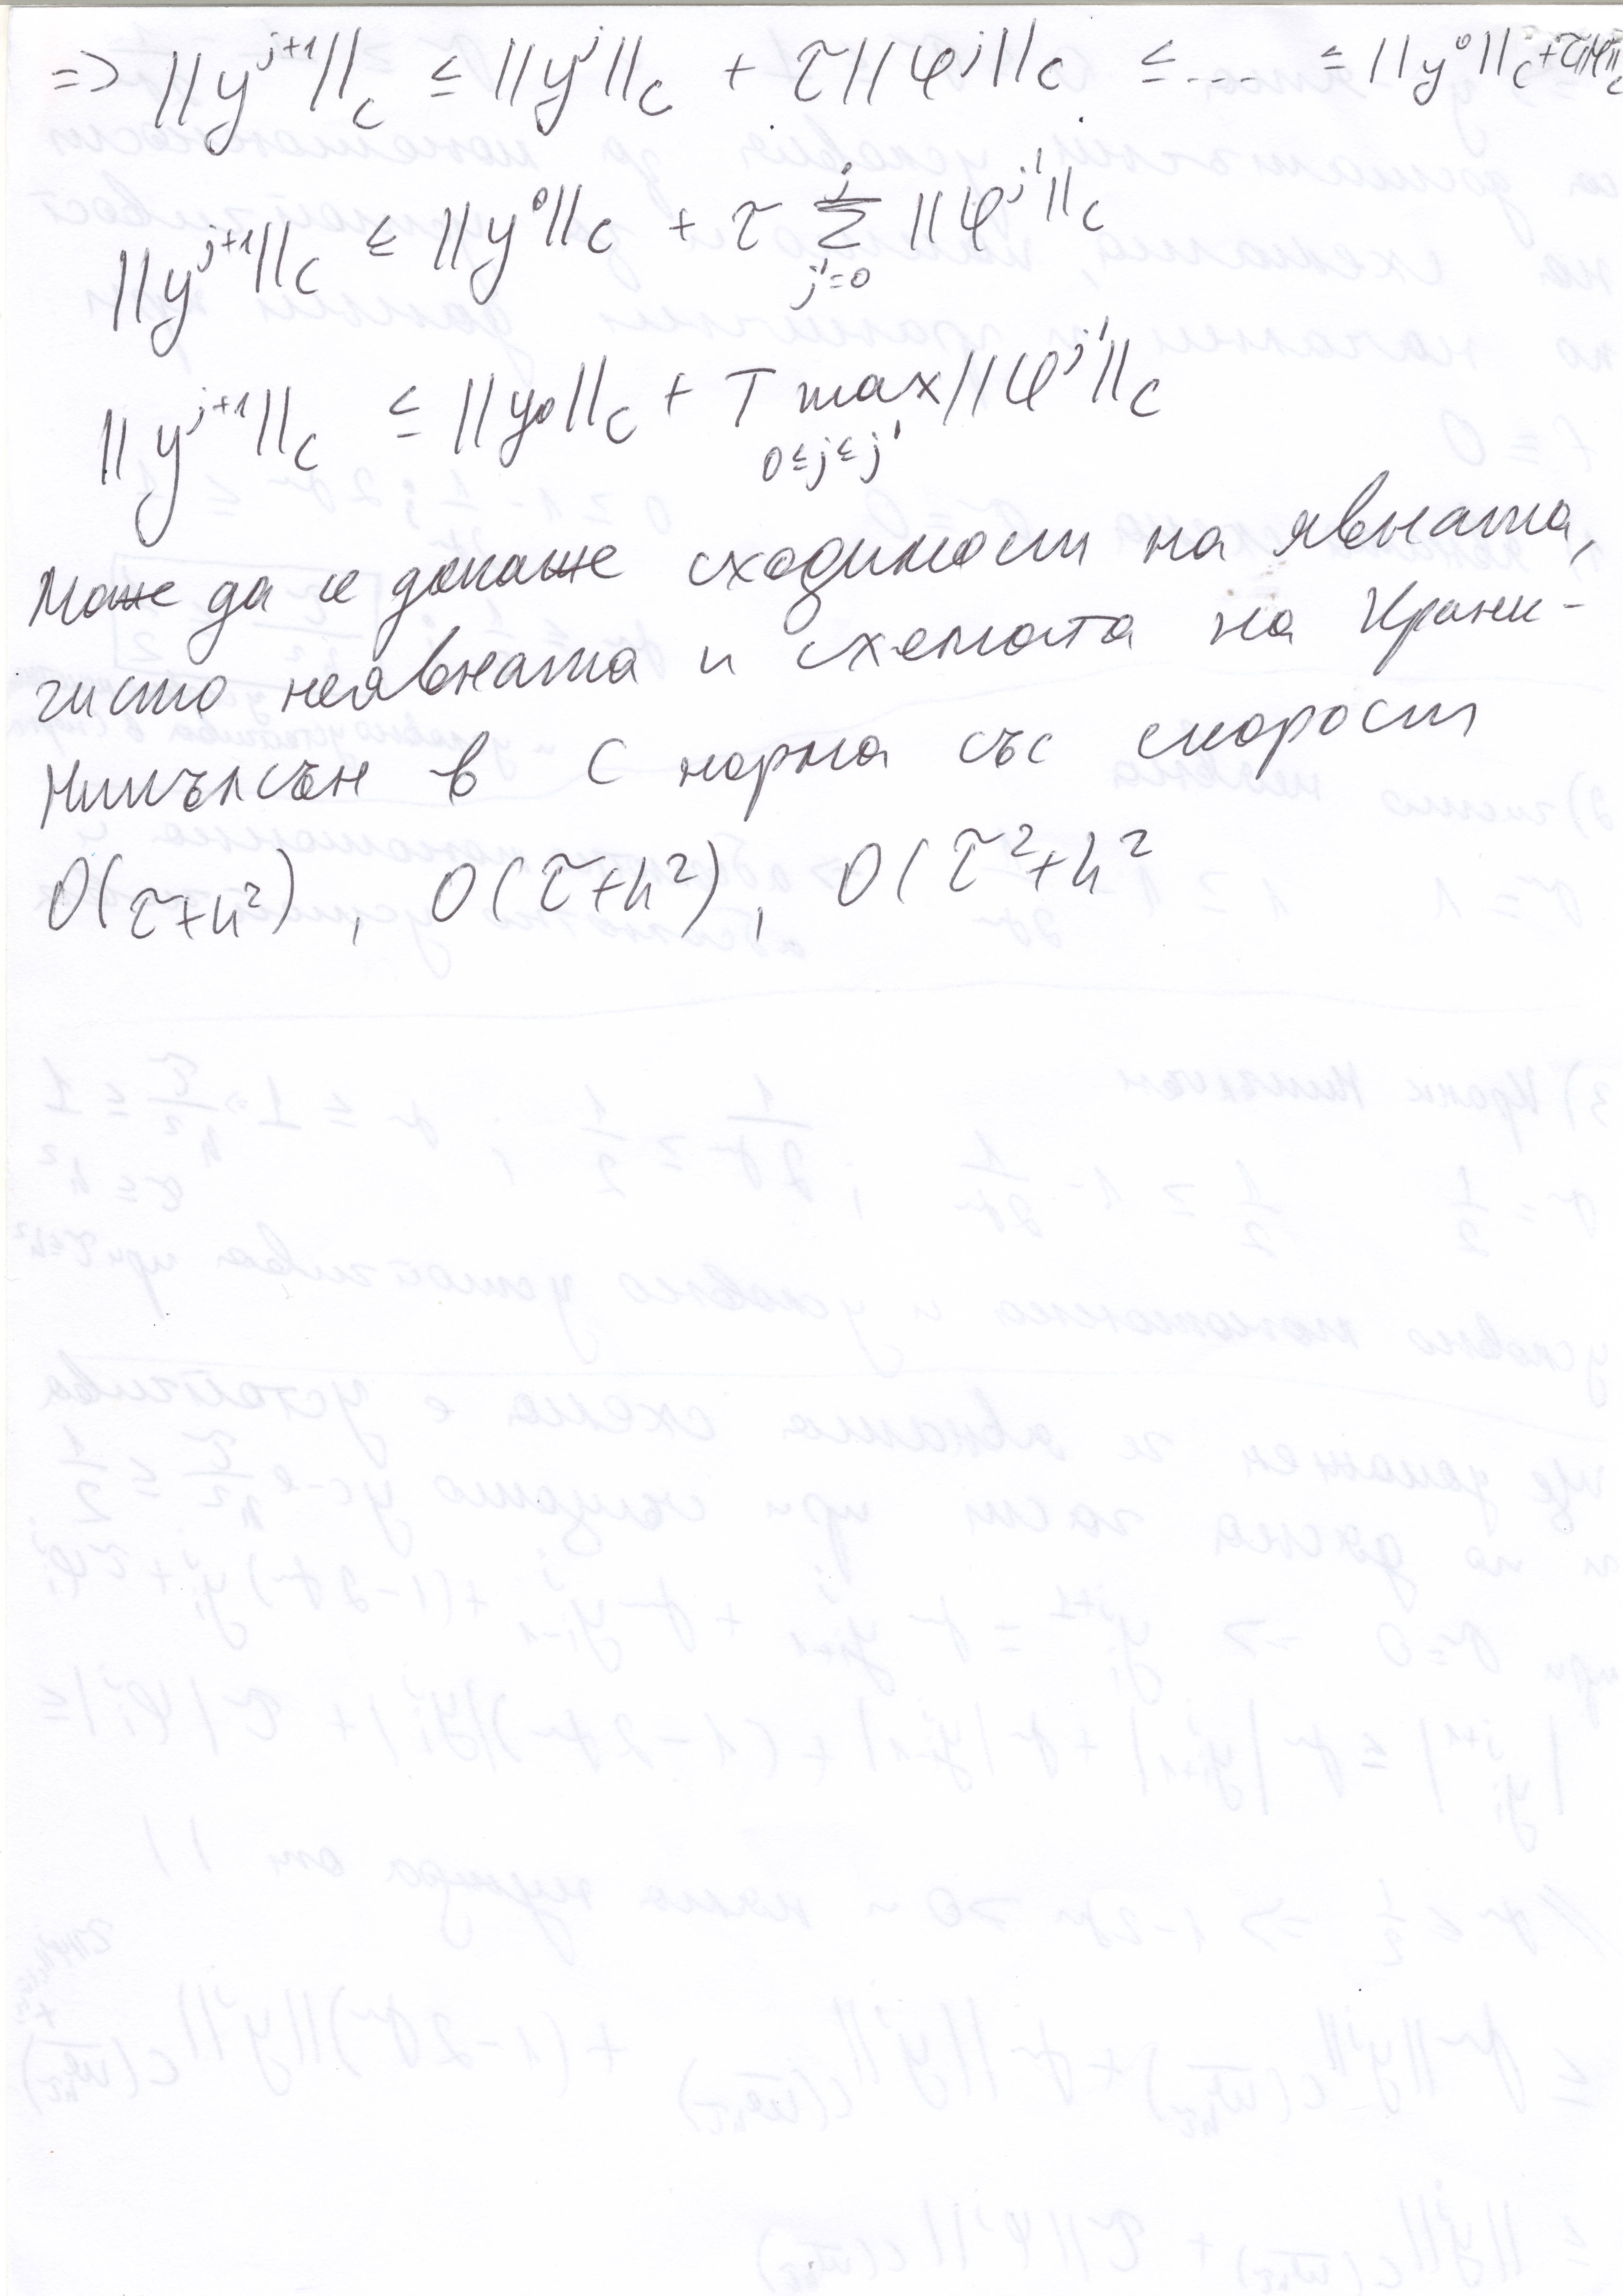 => ||y^{j+1}||_c ≤ ||y^j||_c + τ||φ^j||_c ≤ ... ≤ ||y^0||_c + τ||φ||_c
||y^{j+1}||_c ≤ ||y^0||_c + τ Σ_{j'=0}^{j} ||φ^{j'}||_c
||y^{j+1}||_c ≤ ||y_0||_c + T max_{0≤j≤j'} ||φ^{j'}||_c
Може да се докаже сходимост на явната,
чисто неявната и схемата на Кранк-
Никълсън в C норма със скорост
O(τ+h²), O(τ+h²), O(τ²+h²